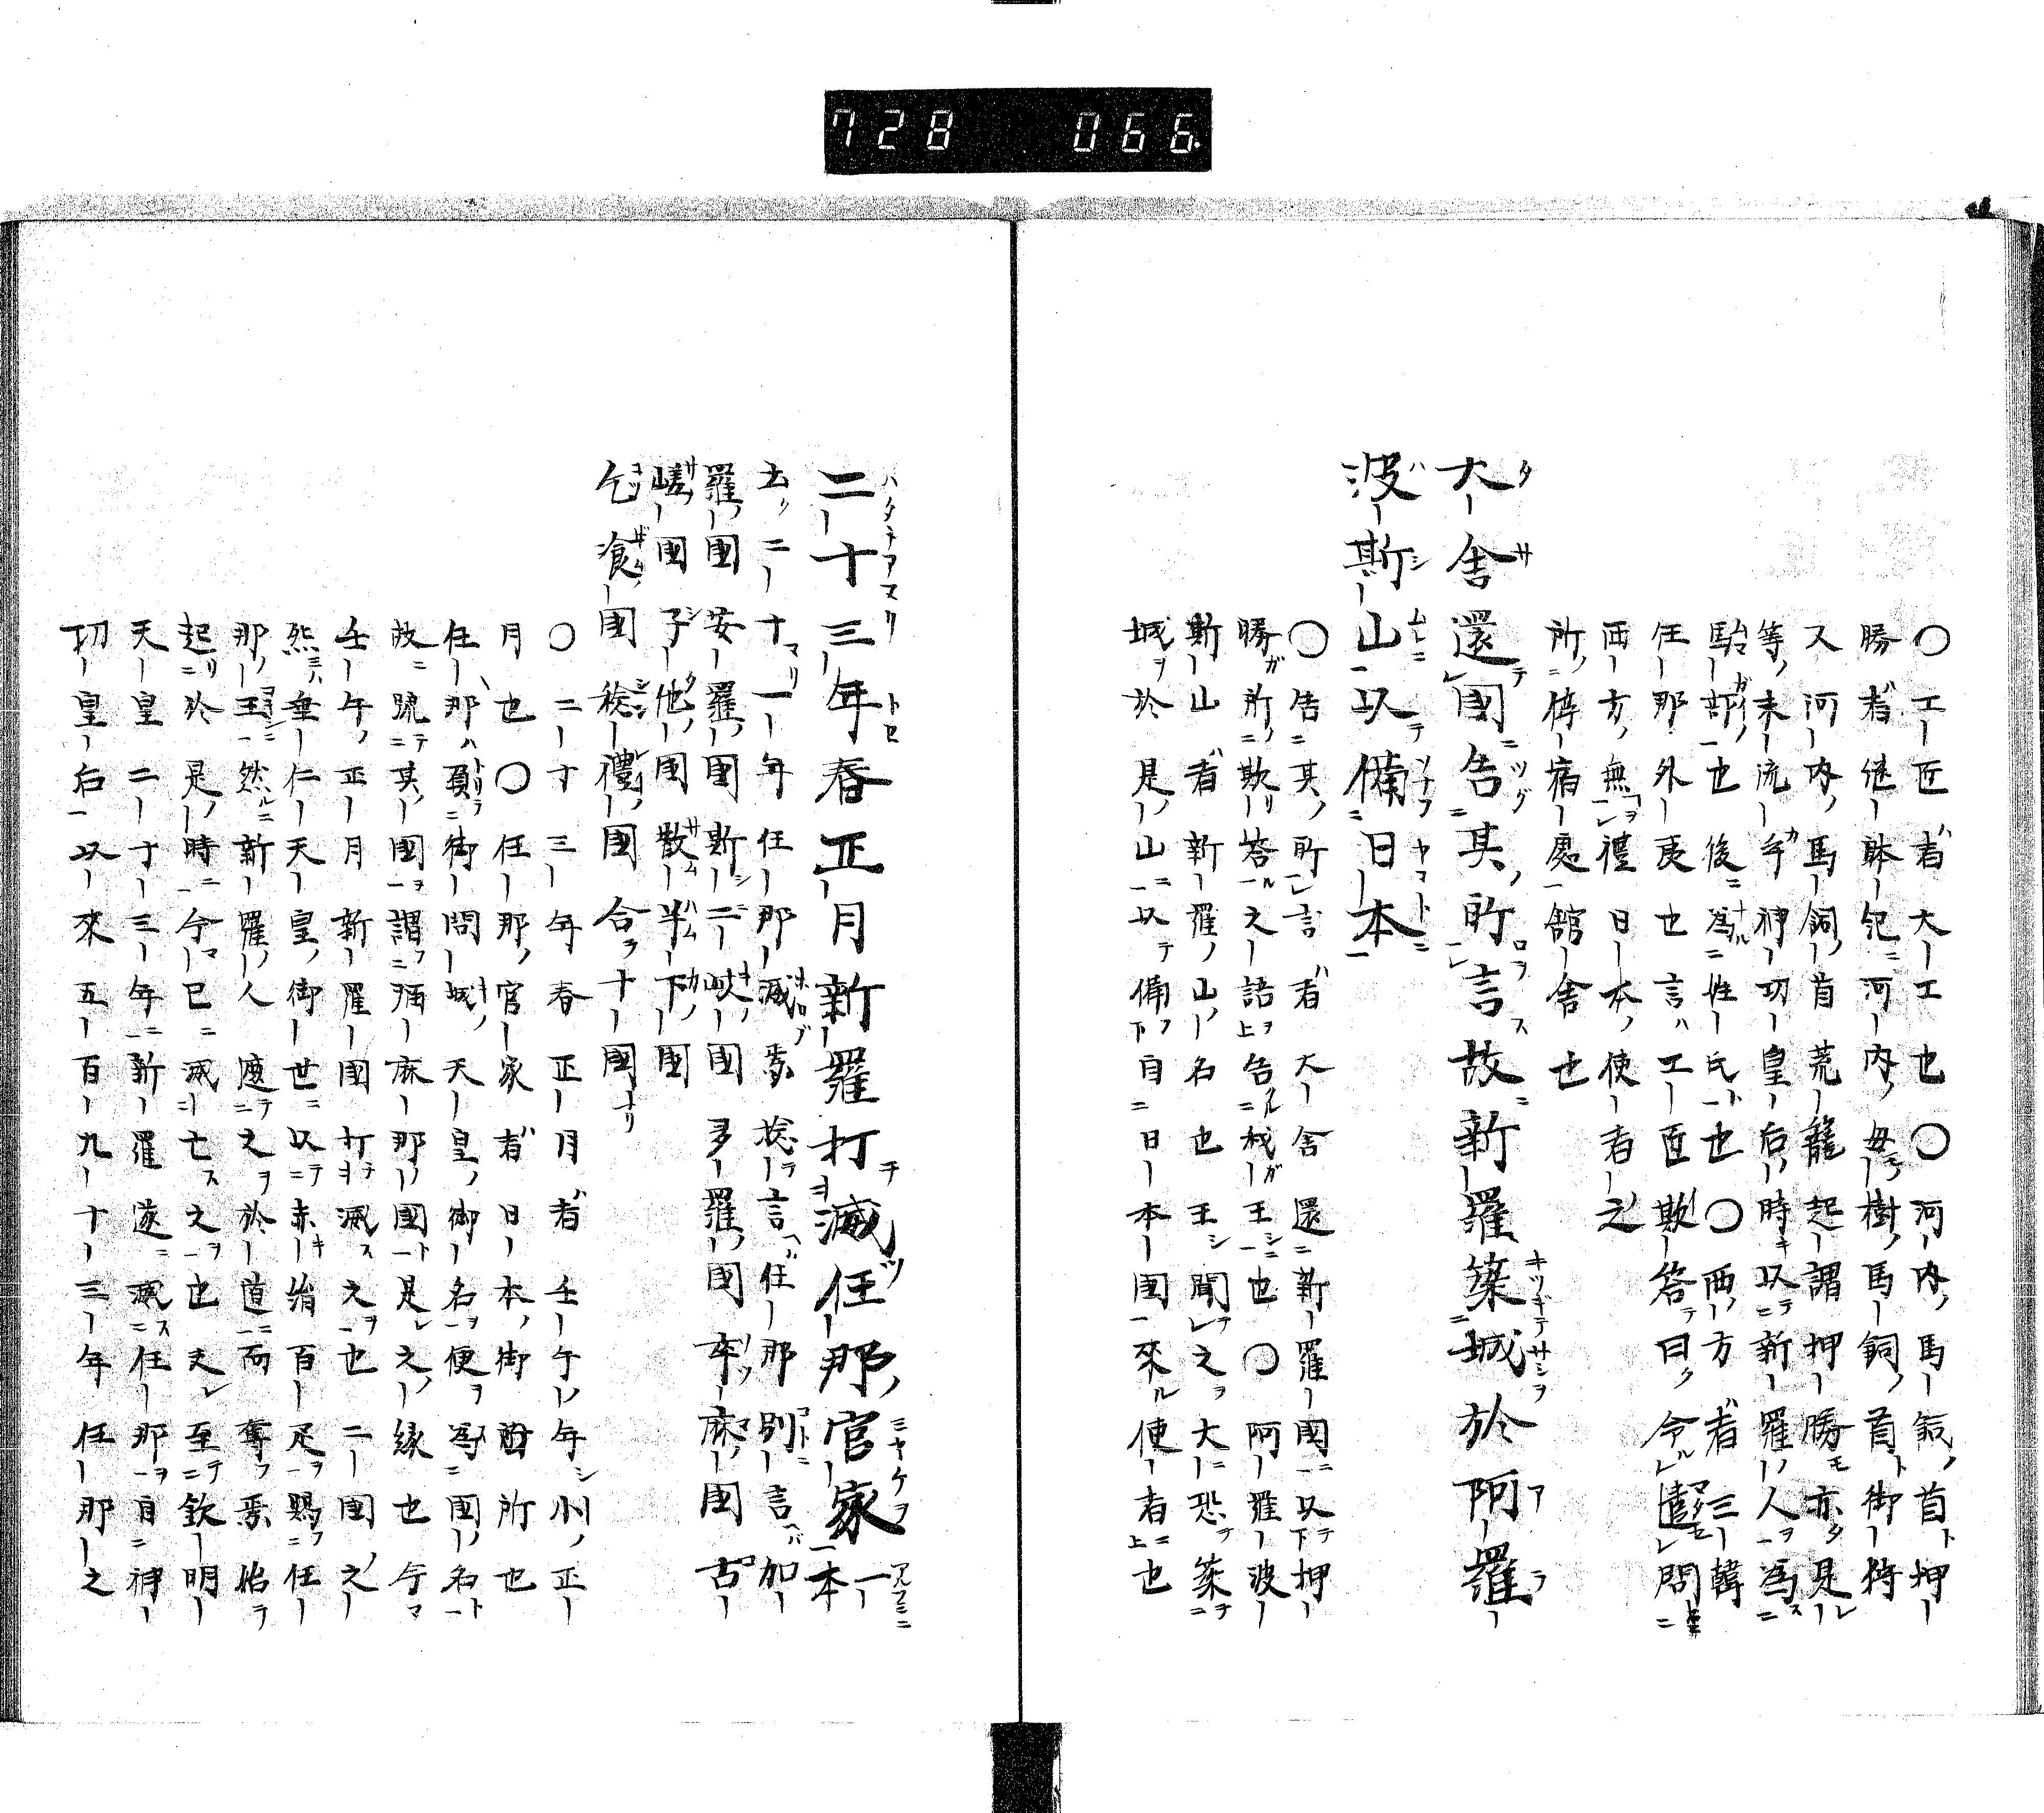 728 066
〇工匠者大工也〇河内馬飼首押
勝者継躰紀河内母樹馬飼首御狩
又河内馬飼首荒籠起謂押勝亦是
等末流乎神功皇后時以新羅人為
駘部也後為姓氏也〇西方者三韓
任那外夷也言工匠欺答曰令遣問
西方無禮日本使者之
所停宿處館舎也
大舎還國告其所言故新羅築城於阿羅
波斯山以備日本
〇告其所言者大舎還新羅國以押
勝所欺答之語告我王也〇阿羅波
斯山者新羅山名也王聞之大恐築
城於是山以備自日本國來使者也
二十三年春正月新羅打滅任那官家一本
云二十一年任那滅焉捴言任那別言加
羅國安羅國斯二岐國多羅國卒麻國古
嵯國子他國散半下國
乞飡國稔禮國合十國
〇二十三年春正月者壬午年小正
月也〇任那官家者日本御所也
任那須御問城天皇御名便為國名
故號其國謂弥麻那國是之縁也今
壬午正月新羅國打滅之也二國之
熈垂仁天皇御世以赤絹百疋賜任
那王然新羅人遮之於道而奪焉始
起於是時今已滅亡之也夫至欽明
天皇二十三年新羅遂滅任那自神
功皇后以來五百九十三年任那之